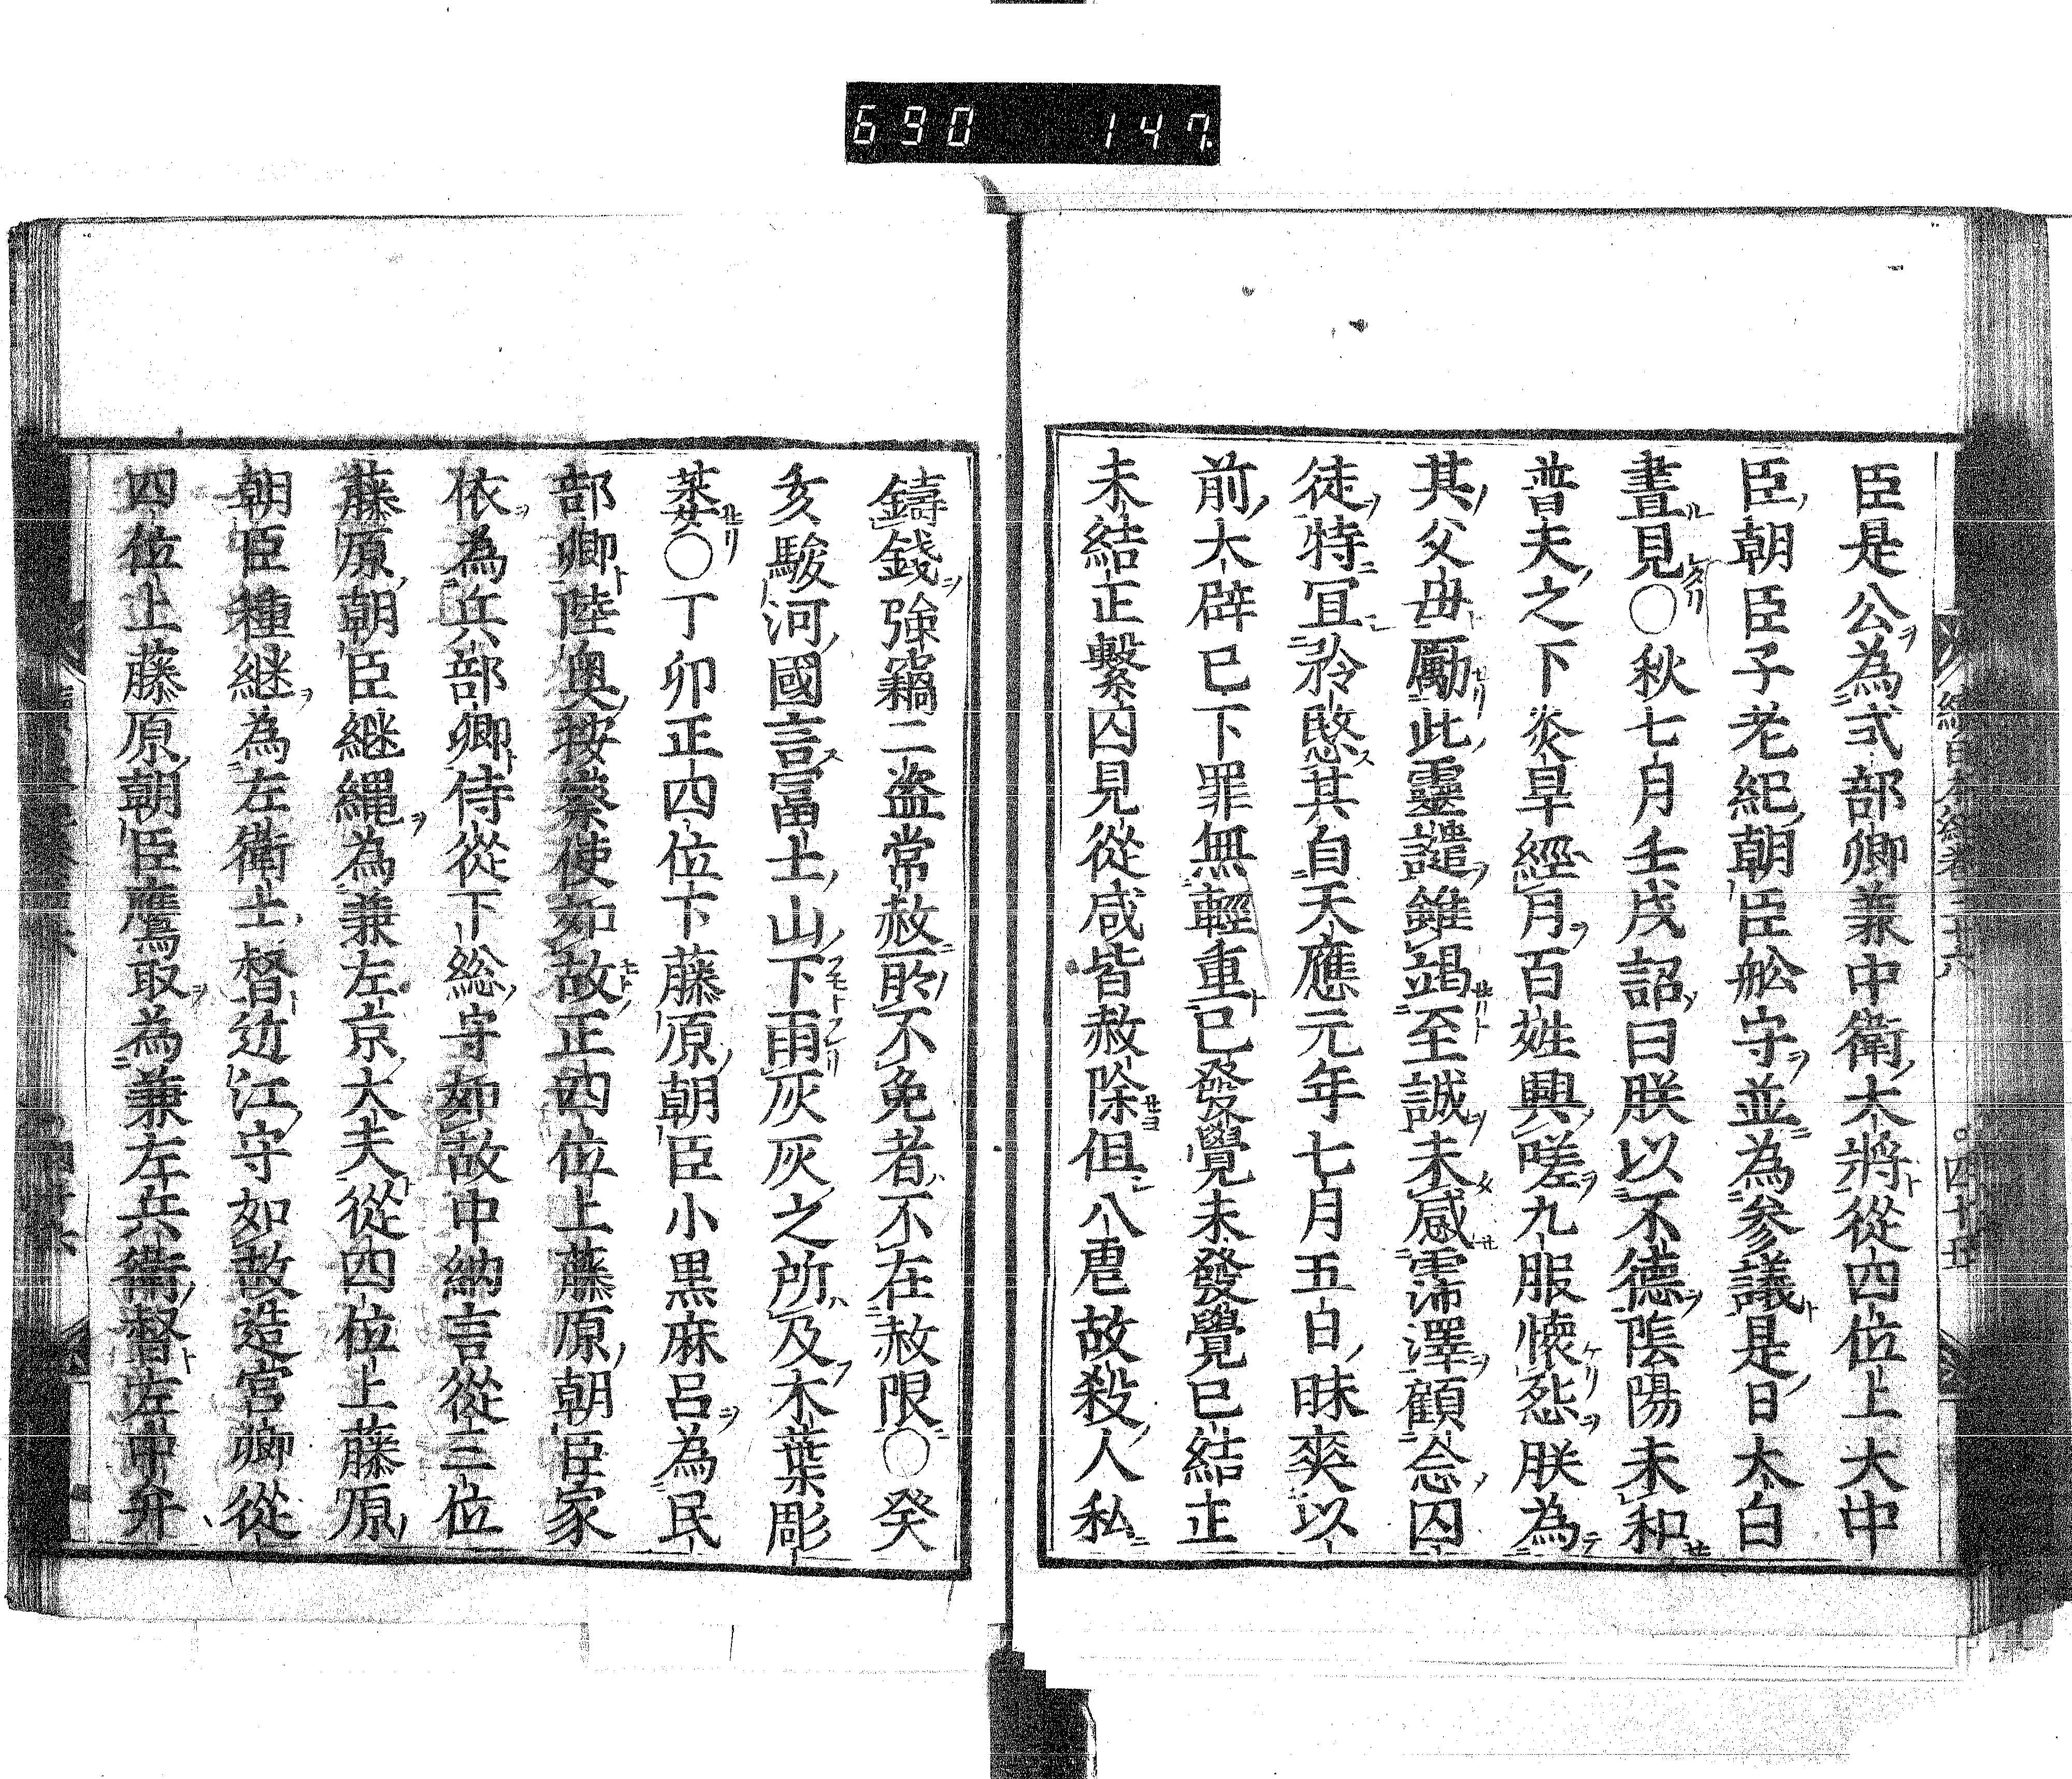 690 147
續日本紀卷三十六 ○四十五
臣是公為式部卿兼中衛大將從四位上大中
臣朝臣子老紀朝臣舩守並為参議是日太白
晝見○秋七月壬戌詔曰朕以不德陰陽未和
普天之下炎旱經月百姓興嗟九服懷怨朕為
其父毋勵此靈譴雖竭至誠未感霈澤顧念囚
徒特冝矜愍其自天應元年七月五日昧爽以
前大辟已下罪無輕重已發覺未發覺已結正
未結正繫囚見從咸皆赦除但八虐故殺人私
鑄錢強竊二盗常赦所不免者不在赦限○癸
亥駿河國言冨士山下雨灰灰之所及木葉彫
萎○丁卯正四位下藤原朝臣小黒麻呂為民
部卿陸奥按察使如故正四位上藤原朝臣家
依為兵部卿侍從下総守如故中納言從三位
藤原朝臣継縄為兼左京大夫從四位上藤原
朝臣種継為左衛士督近江守如故造宮卿從
四位上藤原朝臣鷹取為兼左兵衛督左中弁